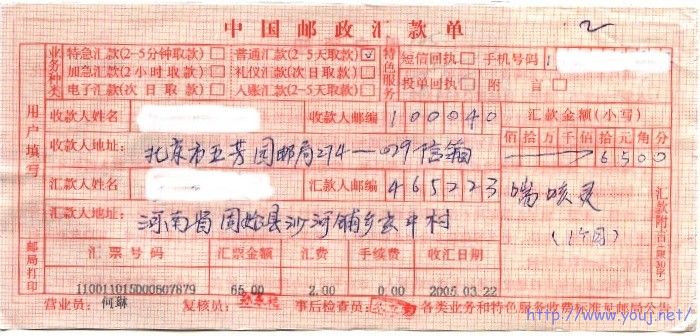 中国邮政汇款单
2
业务种类 特急汇款(2-5分钟取款) 普通汇款(2-5天取款) 特色服务 短信回执 手机号码
加急汇款(2小时取款) 礼仪汇款(次日取款) 投单回执 附言
电子汇款(次日取款) 入账汇款(2-5天取款)
用户填写
收款人姓名 收款人邮编 100040 汇款金额(小写)
佰拾万千佰拾元角分
收款人地址: 北京市五芳园邮局274-079信箱 6500
汇款人姓名 汇款人邮编 465223 喘咳灵
汇款人地址: 河南省固始县沙河铺乡 中村 (1个月)
汇款附言(限30字)
邮局打印
汇票号码 汇票金额 汇费 手续费 收汇日期
110011015D00607879 65.00 2.00 0.00 2005.03.22
营业员: 何琳 复核员: 事后检查员: 各类业务和特色服务收费标准见邮局公告
http://www.youj.net/